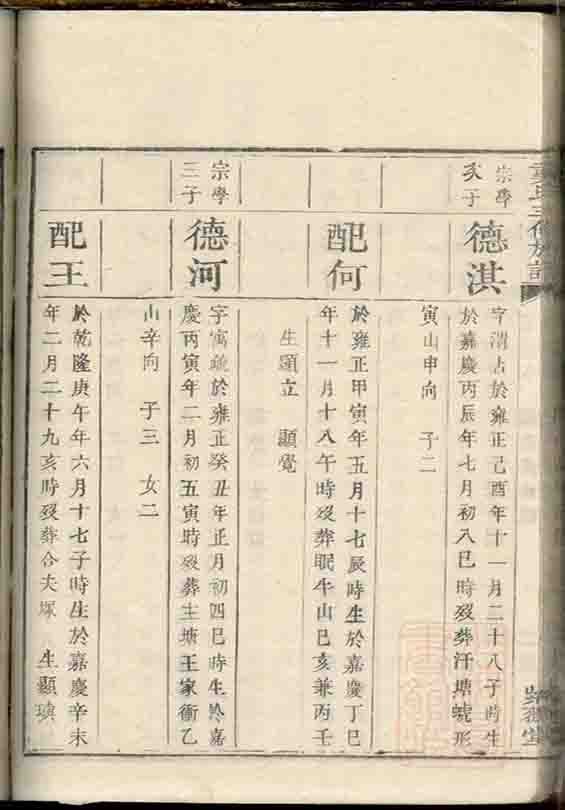 宗學
次子
德淇
字渭占於雍正己酉年十一月二十八子時生
於嘉慶丙辰年七月初八巳時歿葬汗塘蛲形
寅山申向 子二
配何
於雍正甲寅年五月十七辰時生於嘉慶丁巳
年十一月十八午時歿葬眠牛山巳亥兼丙壬
生顯立 顯覺
宗學
三子
德河
字寓疏於雍正癸丑年正月初四巳時生於嘉
慶丙寅年二月初五寅時歿葬土塘王家衝乙
山辛向 子三 女二
配王
於乾隆庚午年六月十七子時生於嘉慶辛未
年二月二十九亥時歿葬合夫塚 生顯璸